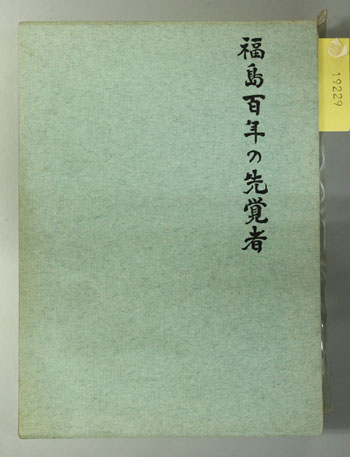 福島百年の先覚者
19229